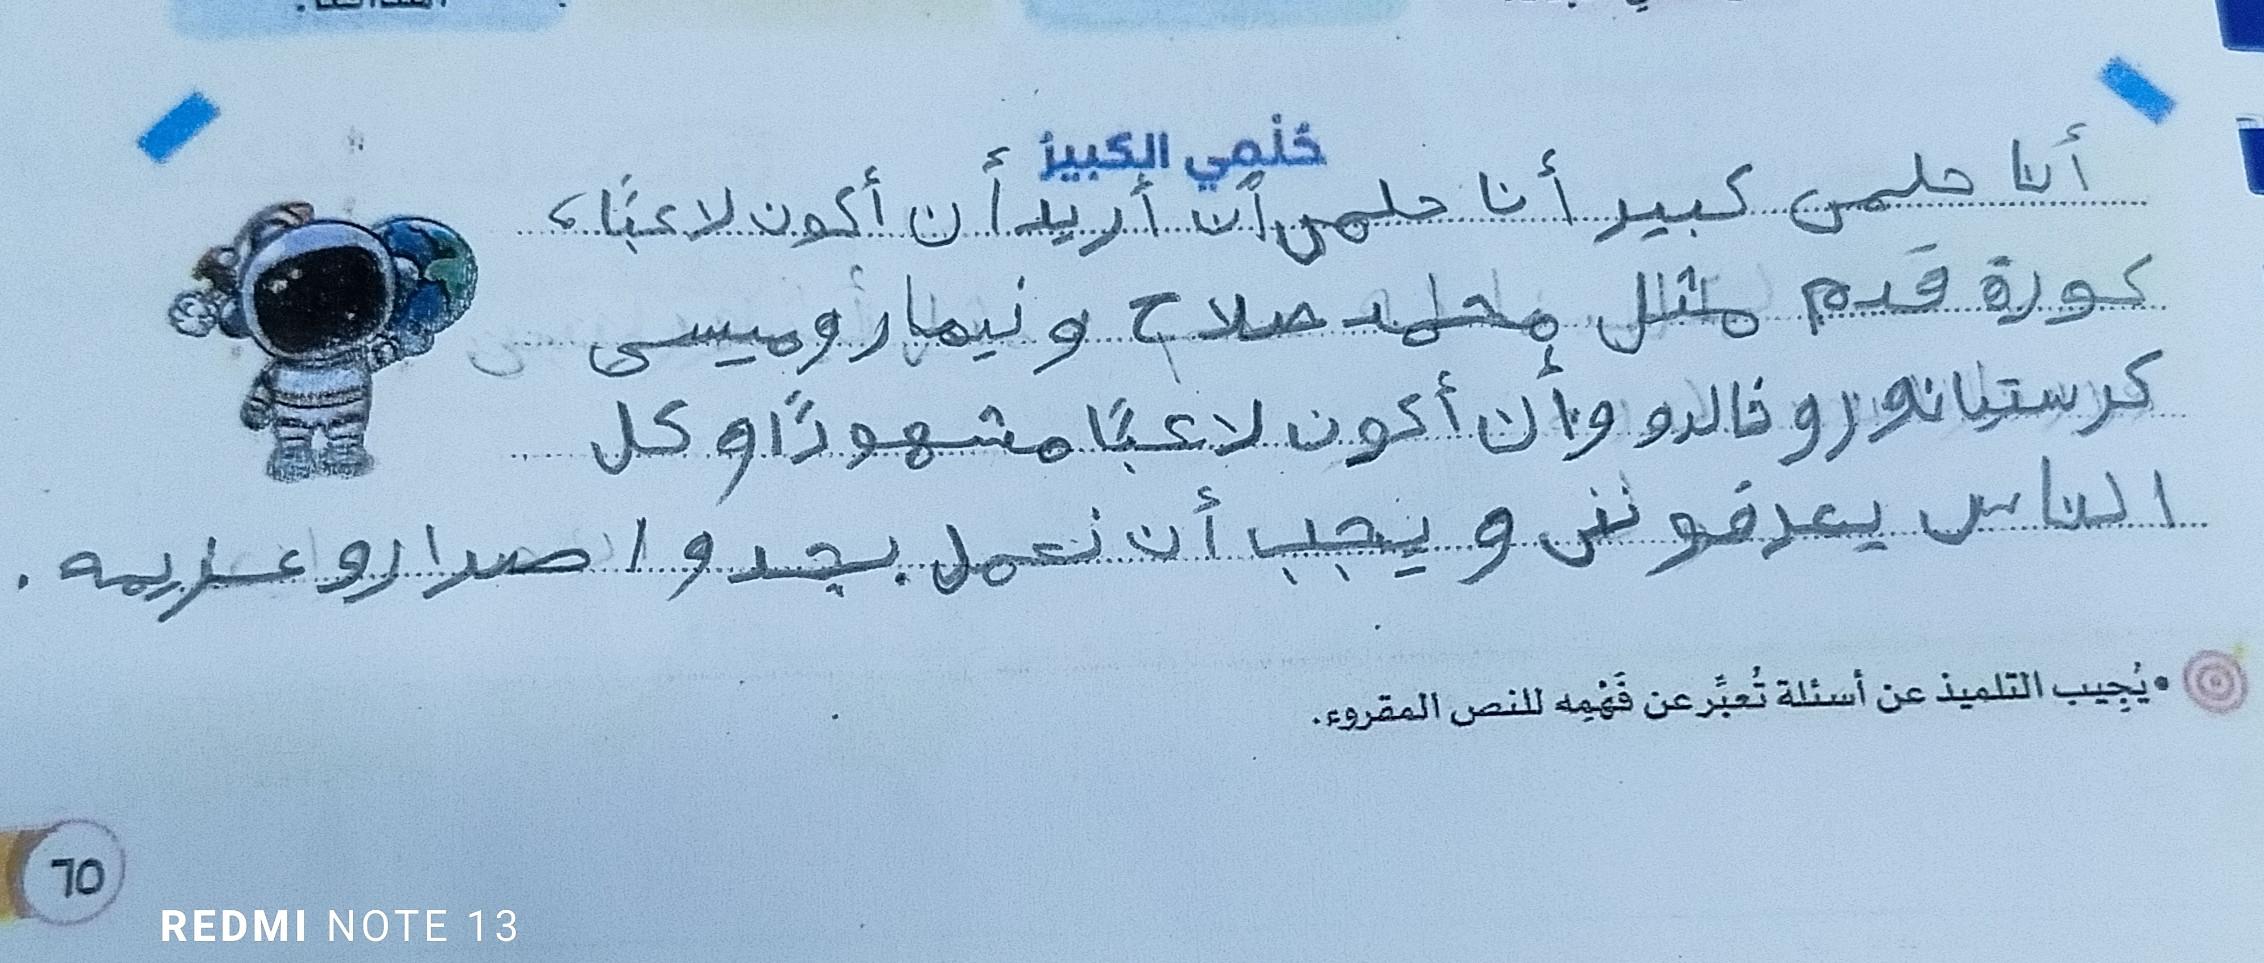 حُلْمِي الكبيرُ
أنا حلمى كبير أنا حلمى أن أريد أن أكون لاعبًا،
كورة قدم مثل محمد صلاح ونيمار وميسى
كرستيانو رونالدو وأن أكون لاعبًا مشهورًا وكل
الناس يعرفوننى ويجب أن نعمل بجد واصرار وعزيمه.
• يُجيب التلميذ عن أسئلة تُعبِّر عن فَهْمِه للنص المقروء.
70
REDMI NOTE 13